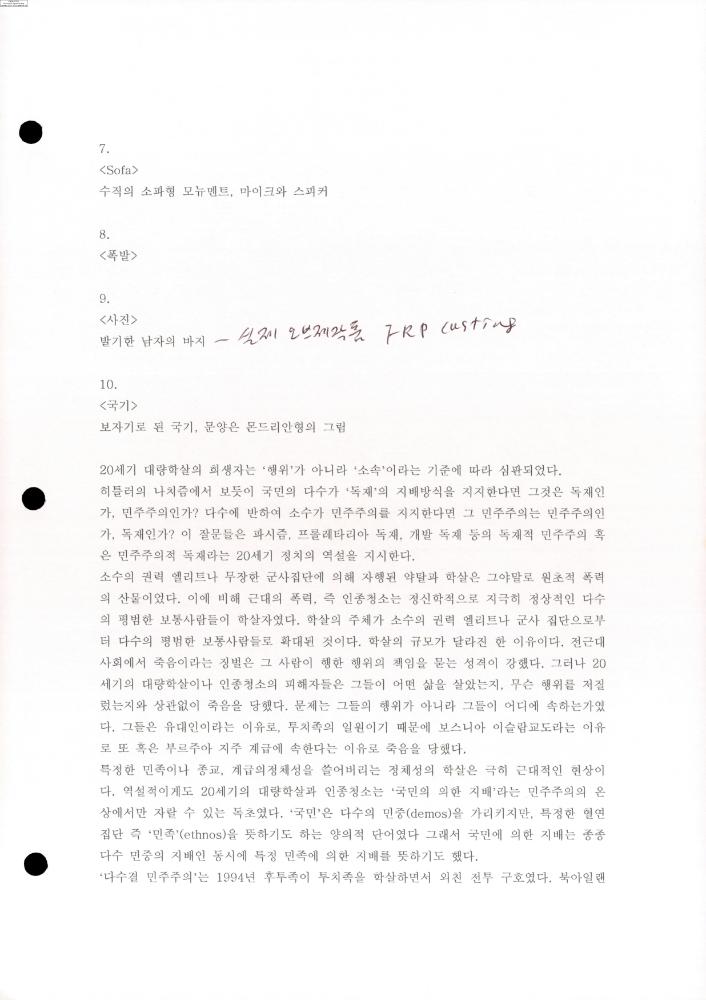 7.
<Sofa>
수직의 소파형 모뉴멘트, 마이크와 스피커
8.
<폭발>
9.
<사진>
발기한 남자의 바지 – 실제 오브제작품 FRP custing
10.
<국기>
보자기로 된 국기, 문양은 몬드리안형의 그림
20세기 대량학살의 희생자는 ‘행위’가 아니라 ‘소속’이라는 기준에 따라 심판되었다.
히틀러의 나치즘에서 보듯이 국민의 다수가 ‘독재’의 지배방식을 지지한다면 그것은 독재인
가, 민주주의인가? 다수에 반하여 소수가 민주주의를 지지한다면 그 민주주의는 민주주의인
가, 독재인가? 이 잘문들은 파시즘, 프롤레타리아 독재, 개발 독재 등의 독재적 민주주의 혹
은 민주주의적 독재라는 20세기 정치의 역설을 지시한다.
소수의 권력 엘리트나 무장한 군사집단에 의해 자행된 약탈과 학살은 그야말로 원초적 폭력
의 산물이었다. 이에 비해 근대의 폭력, 즉 인종청소는 정신학적으로 지극히 정상적인 다수
의 평범한 보통사람들이 학살자였다. 학살의 주체가 소수의 권력 엘리트나 군사 집단으로부
터 다수의 평범한 보통사람들로 확대된 것이다. 학살의 규모가 달라진 한 이유이다. 전근대
사회에서 죽음이라는 징벌은 그 사람이 행한 행위의 책임을 묻는 성격이 강했다. 그러나 20
세기의 대량학살이나 인종청소의 피해자들은 그들이 어떤 삶을 살았는지, 무슨 행위를 저질
렀는지와 상관없이 죽음을 당했다. 문제는 그들의 행위가 아니라 그들이 어디에 속하는가였
다. 그들은 유대인이라는 이유로, 투치족의 일원이기 때문에 보스니아 이슬람교도라는 이유
로 또 혹은 부르주아 지주 계급에 속한다는 이유로 죽음을 당했다.
특정한 민족이나 종교, 계급의정체성을 쓸어버리는 정체성의 학살은 극히 근대적인 현상이
다. 역설적이게도 20세기의 대량학살과 인종청소는 ‘국민의 의한 지배’라는 민주주의의 온
상에서만 자랄 수 있는 독초였다. ‘국민’은 다수의 민중(demos)을 가리키지만, 특정한 혈연
집단 즉 ‘민족’(ethnos)을 뜻하기도 하는 양의적 단어였다 그래서 국민에 의한 지배는 종종
다수 민중의 지배인 동시에 특정 민족에 의한 지배를 뜻하기도 했다.
‘다수결 민주주의’는 1994년 후투족이 투치족을 학살하면서 외친 전투 구호였다. 북아일랜